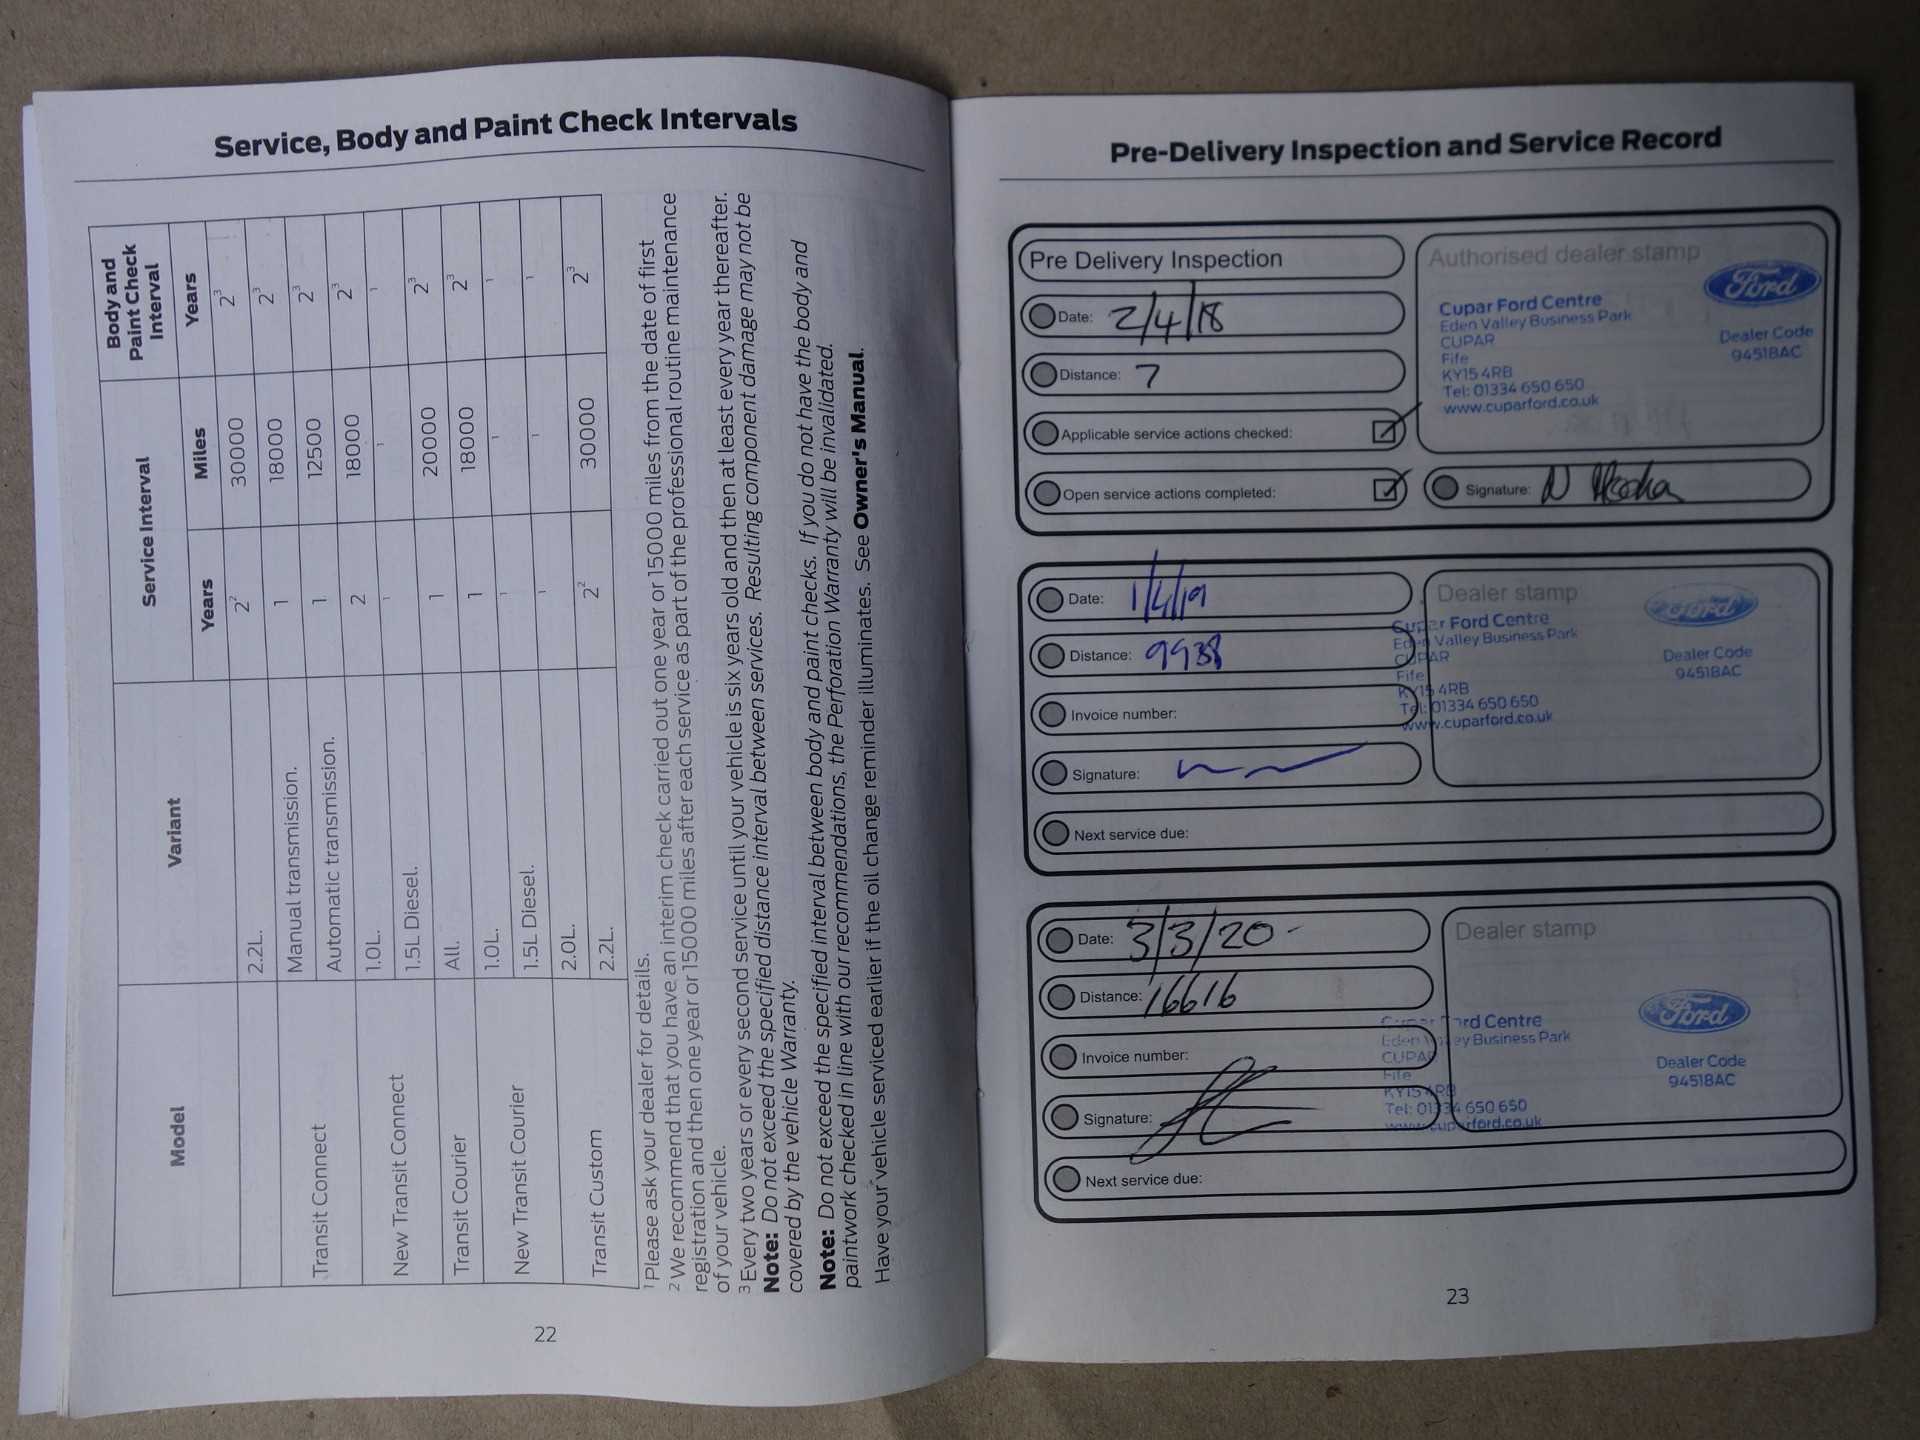 Service, Body and Paint Check Intervals
Model Variant Service Interval Body and Paint Check Interval
Years Miles Years
2.2L. 2² 30000 2³
Transit Connect Manual transmission. 1 18000 2³
Automatic transmission. 1 12500 2³
New Transit Connect 1.0L. 2 18000 2³
1.5L Diesel. ¹ ¹ ¹
Transit Courier All. 1 20000 2³
New Transit Courier 1.0L. 1 18000 2³
1.5L Diesel. ¹ ¹ ¹
Transit Custom 2.0L. ¹ ¹ ¹
2.2L. 2² 30000 2³
¹ Please ask your dealer for details.
² We recommend that you have an interim check carried out one year or 15000 miles from the date of first
registration and then one year or 15000 miles after each service as part of the professional routine maintenance
of your vehicle.
³ Every two years or every second service until your vehicle is six years old and then at least every year thereafter.
Note: Do not exceed the specified distance interval between services. Resulting component damage may not be
covered by the vehicle Warranty.
Note: Do not exceed the specified interval between body and paint checks. If you do not have the body and
paintwork checked in line with our recommendations, the Perforation Warranty will be invalidated.
Have your vehicle serviced earlier if the oil change reminder illuminates. See Owner's Manual.
22
Pre-Delivery Inspection and Service Record
Pre Delivery Inspection
Date: 2/4/18
Distance: 7
Applicable service actions checked:
Open service actions completed:
Authorised dealer stamp
Ford
Cupar Ford Centre
Eden Valley Business Park
CUPAR
Fife
KY15 4RB
Tel: 01334 650 650
www.cuparford.co.uk
Dealer Code
9451BAC
Signature: N
Date: 1/4/19
Distance: 9938
Invoice number:
Signature:
Next service due:
Dealer stamp
Ford
Cupar Ford Centre
Eden Valley Business Park
CUPAR
Fife
KY15 4RB
Tel: 01334 650 650
www.cuparford.co.uk
Dealer Code
9451BAC
Date: 3/3/20
Distance: 16616
Invoice number:
Signature:
Next service due:
Dealer stamp
Ford
Cupar Ford Centre
Eden Valley Business Park
CUPAR
Fife
KY15 4RB
Tel: 01334 650 650
www.cuparford.co.uk
Dealer Code
9451BAC
23